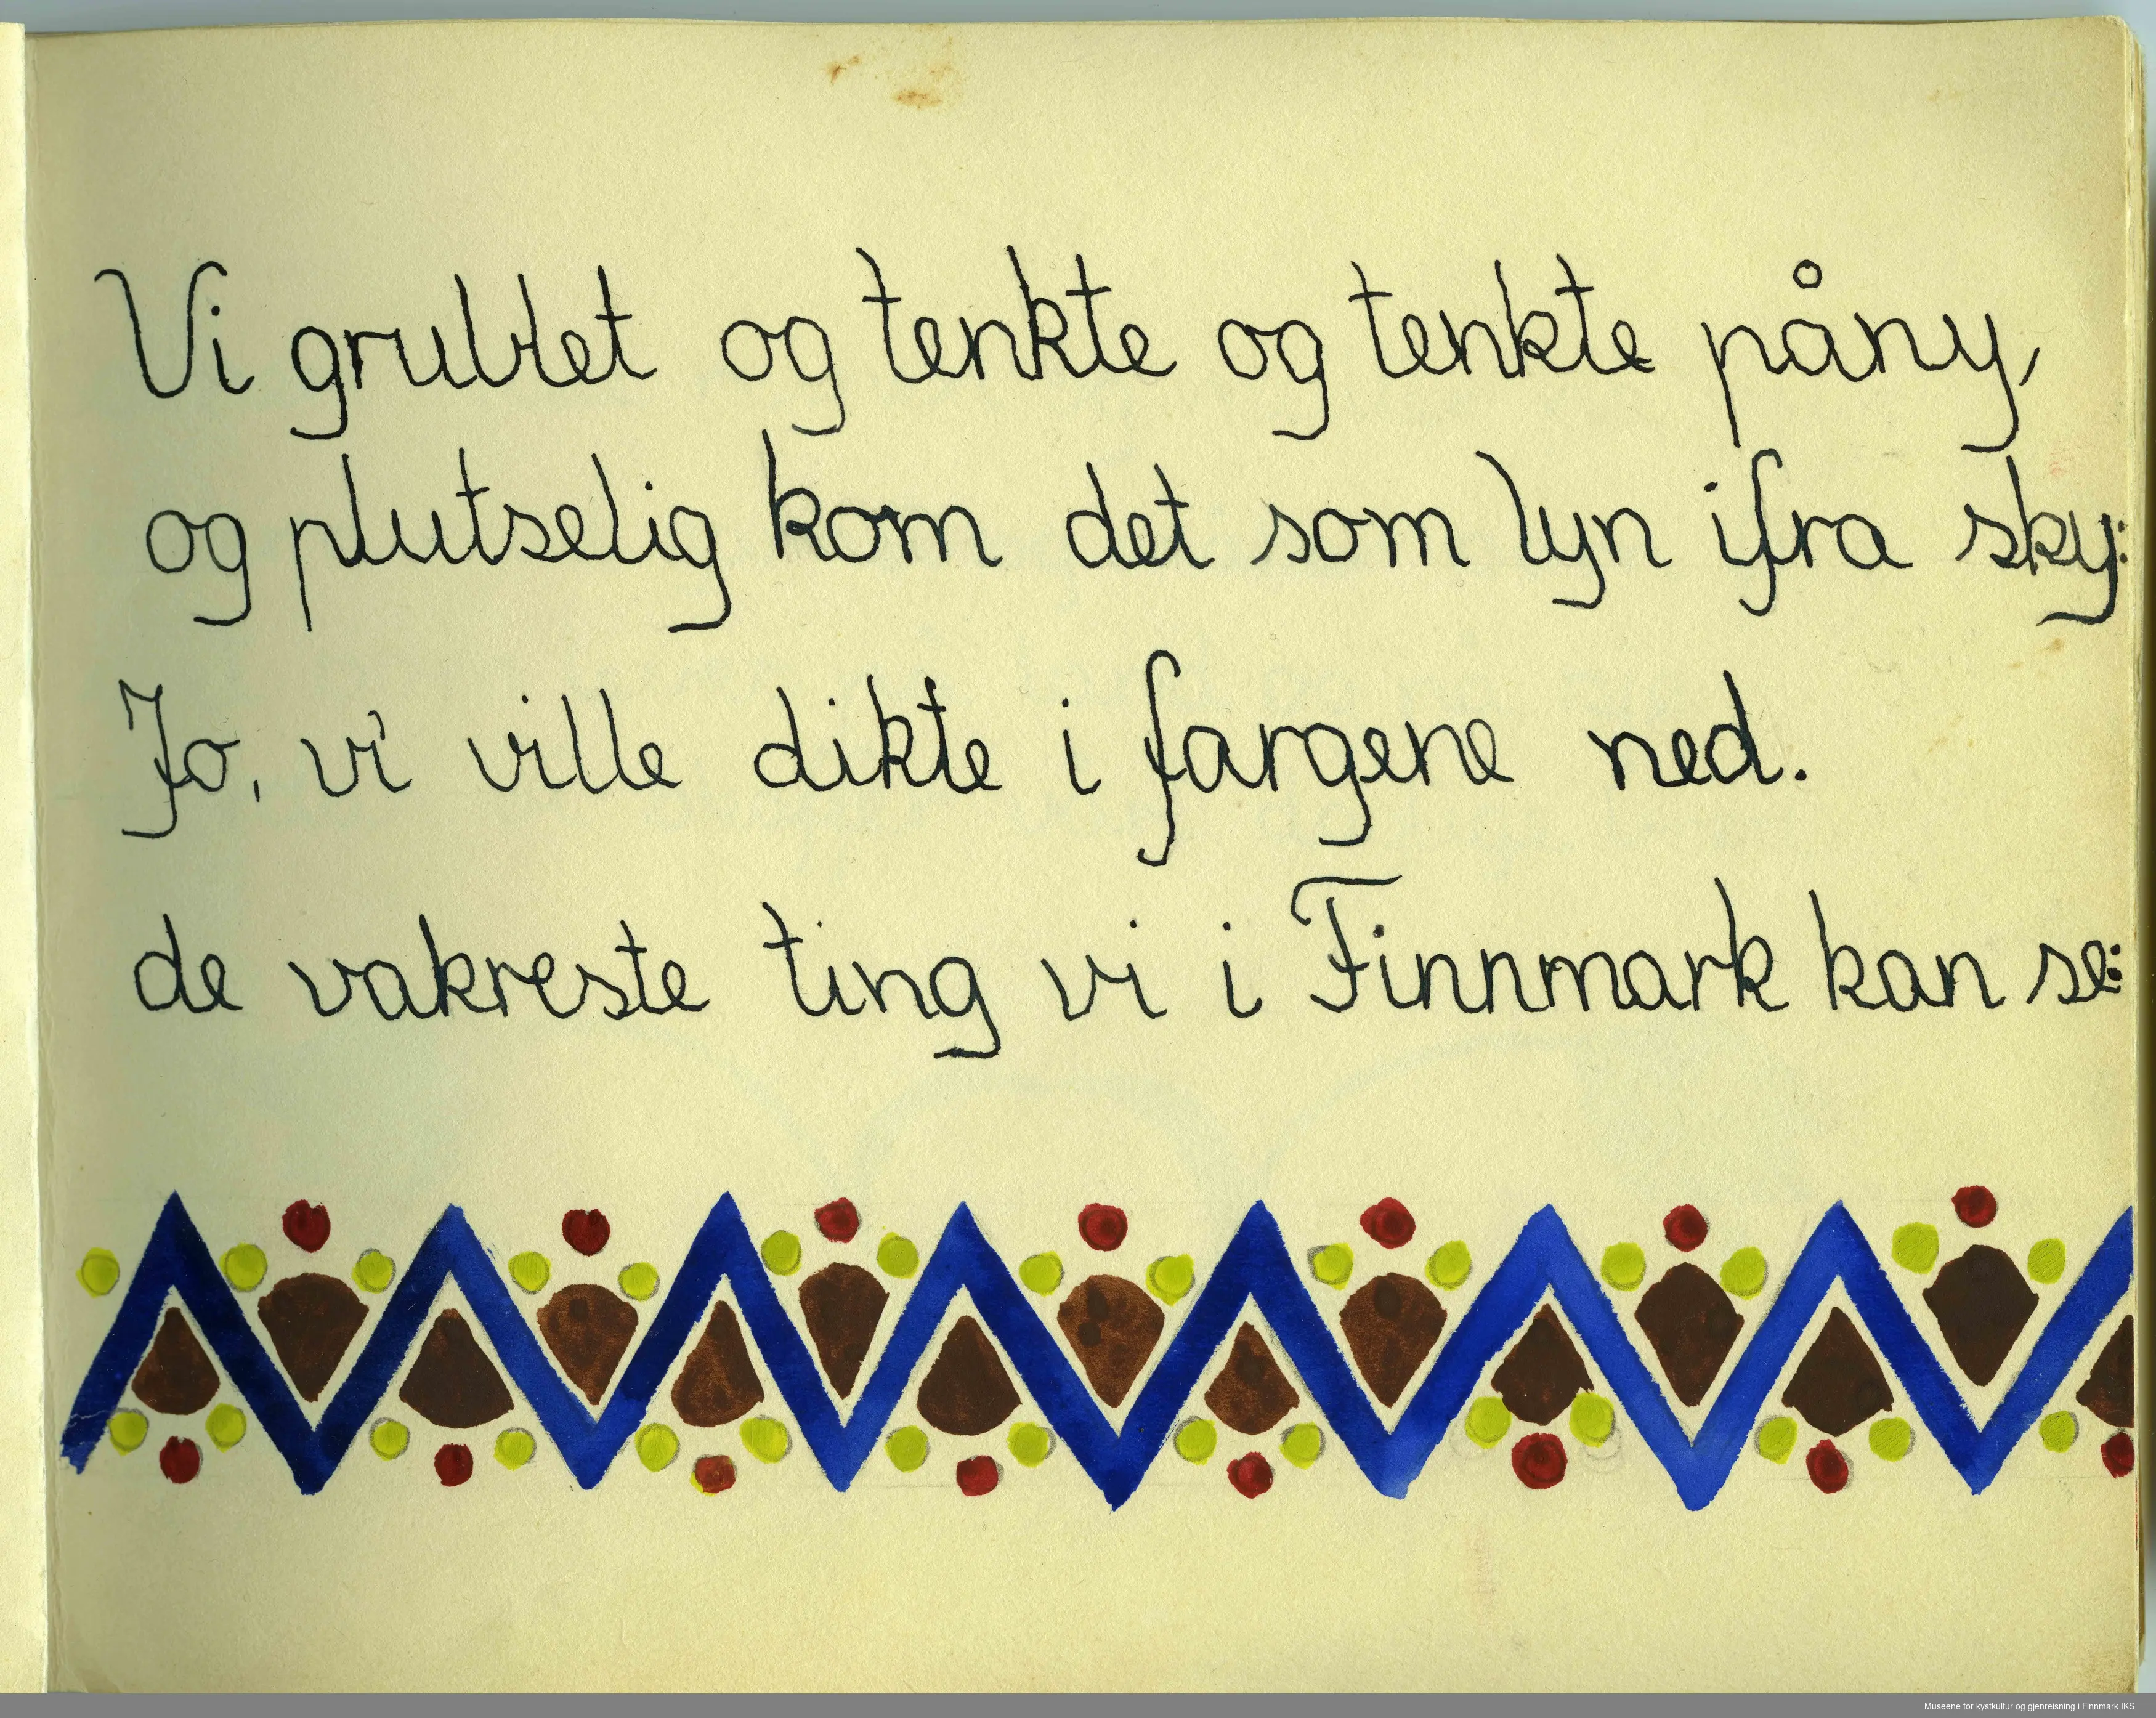 Vi grublet og tenkte og tenkte påny,
og plutselig kom det som lyn ifra sky:
Jo, vi ville dikte i fargene ned.
de vakreste ting vi i Finnmark kan se:
Museene for kystkultur og gjenreisning i Finnmark IKS